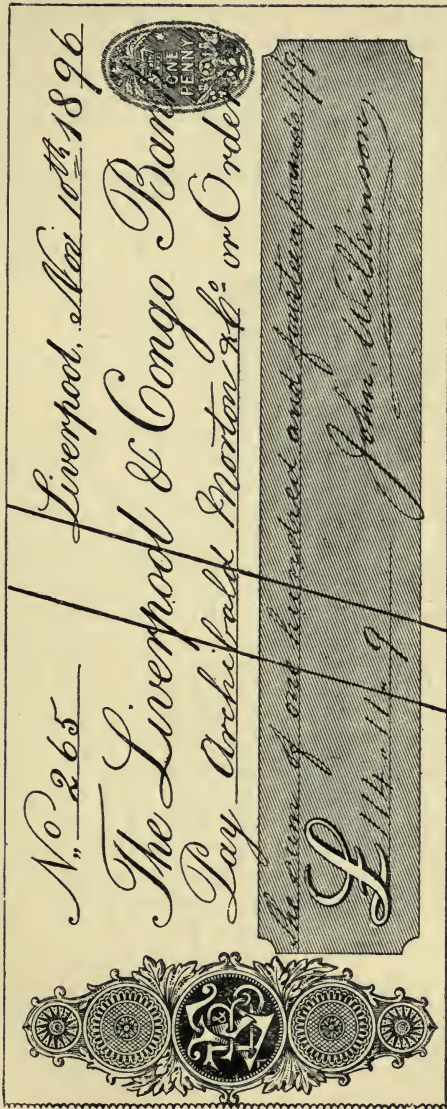 No 265 Liverpool, Nov 10th 1896
ONE
PENNY
The Liverpool & Congo Bank
Pay Archibald Morton & Co or Order
The sum of one hundred and fourteen pounds 11/9
£ 114 . 11 . 9
John Wilkinson.